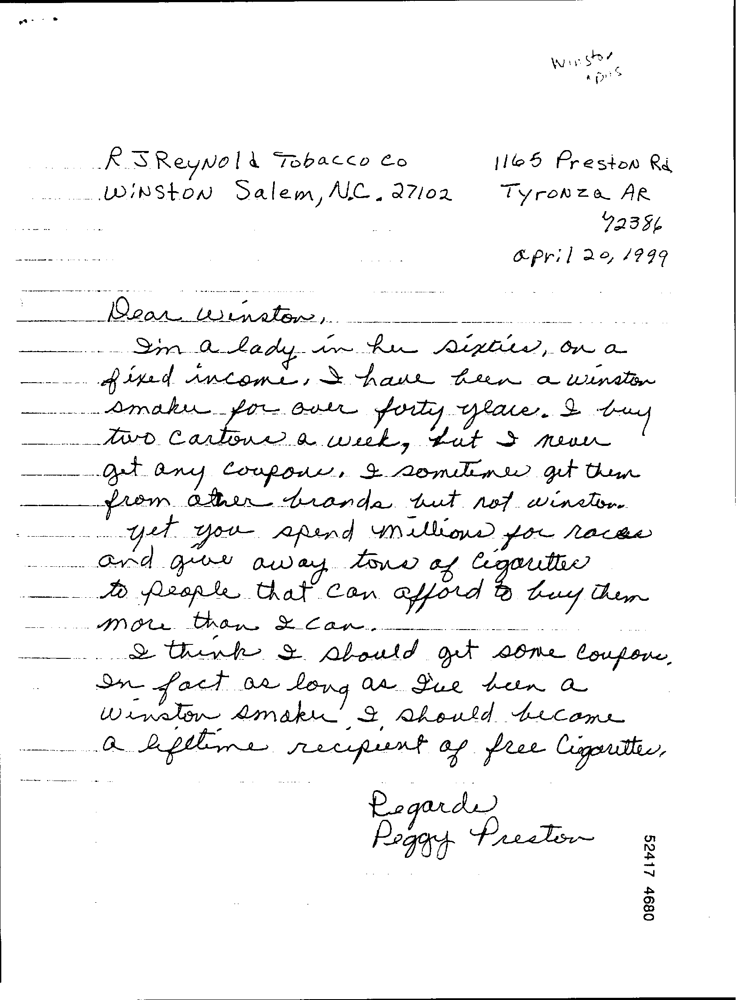 Winston
R J ReyNold Tobacco Co
WiNstoN Salem, N.C. 27102
1165 Preston Rd
TyroNza AR
72386
april 20, 1999
Dear Winston,
I'm a lady in her sixties, on a
fixed income, I have been a winston
smoker for over forty years. I buy
two cartons a week, but I never
get any coupons. I sometimes get them
from other brands but not winston.
yet you spend millions for races
and give away tons of Cigarettes
to people that can afford to buy them
more than I can.
I think I should get some Coupons.
In fact as long as I've been a
winston smoker, I should become
a lifetime recipient of free Cigarettes,
Regards
Peggy Preston
52417 4680